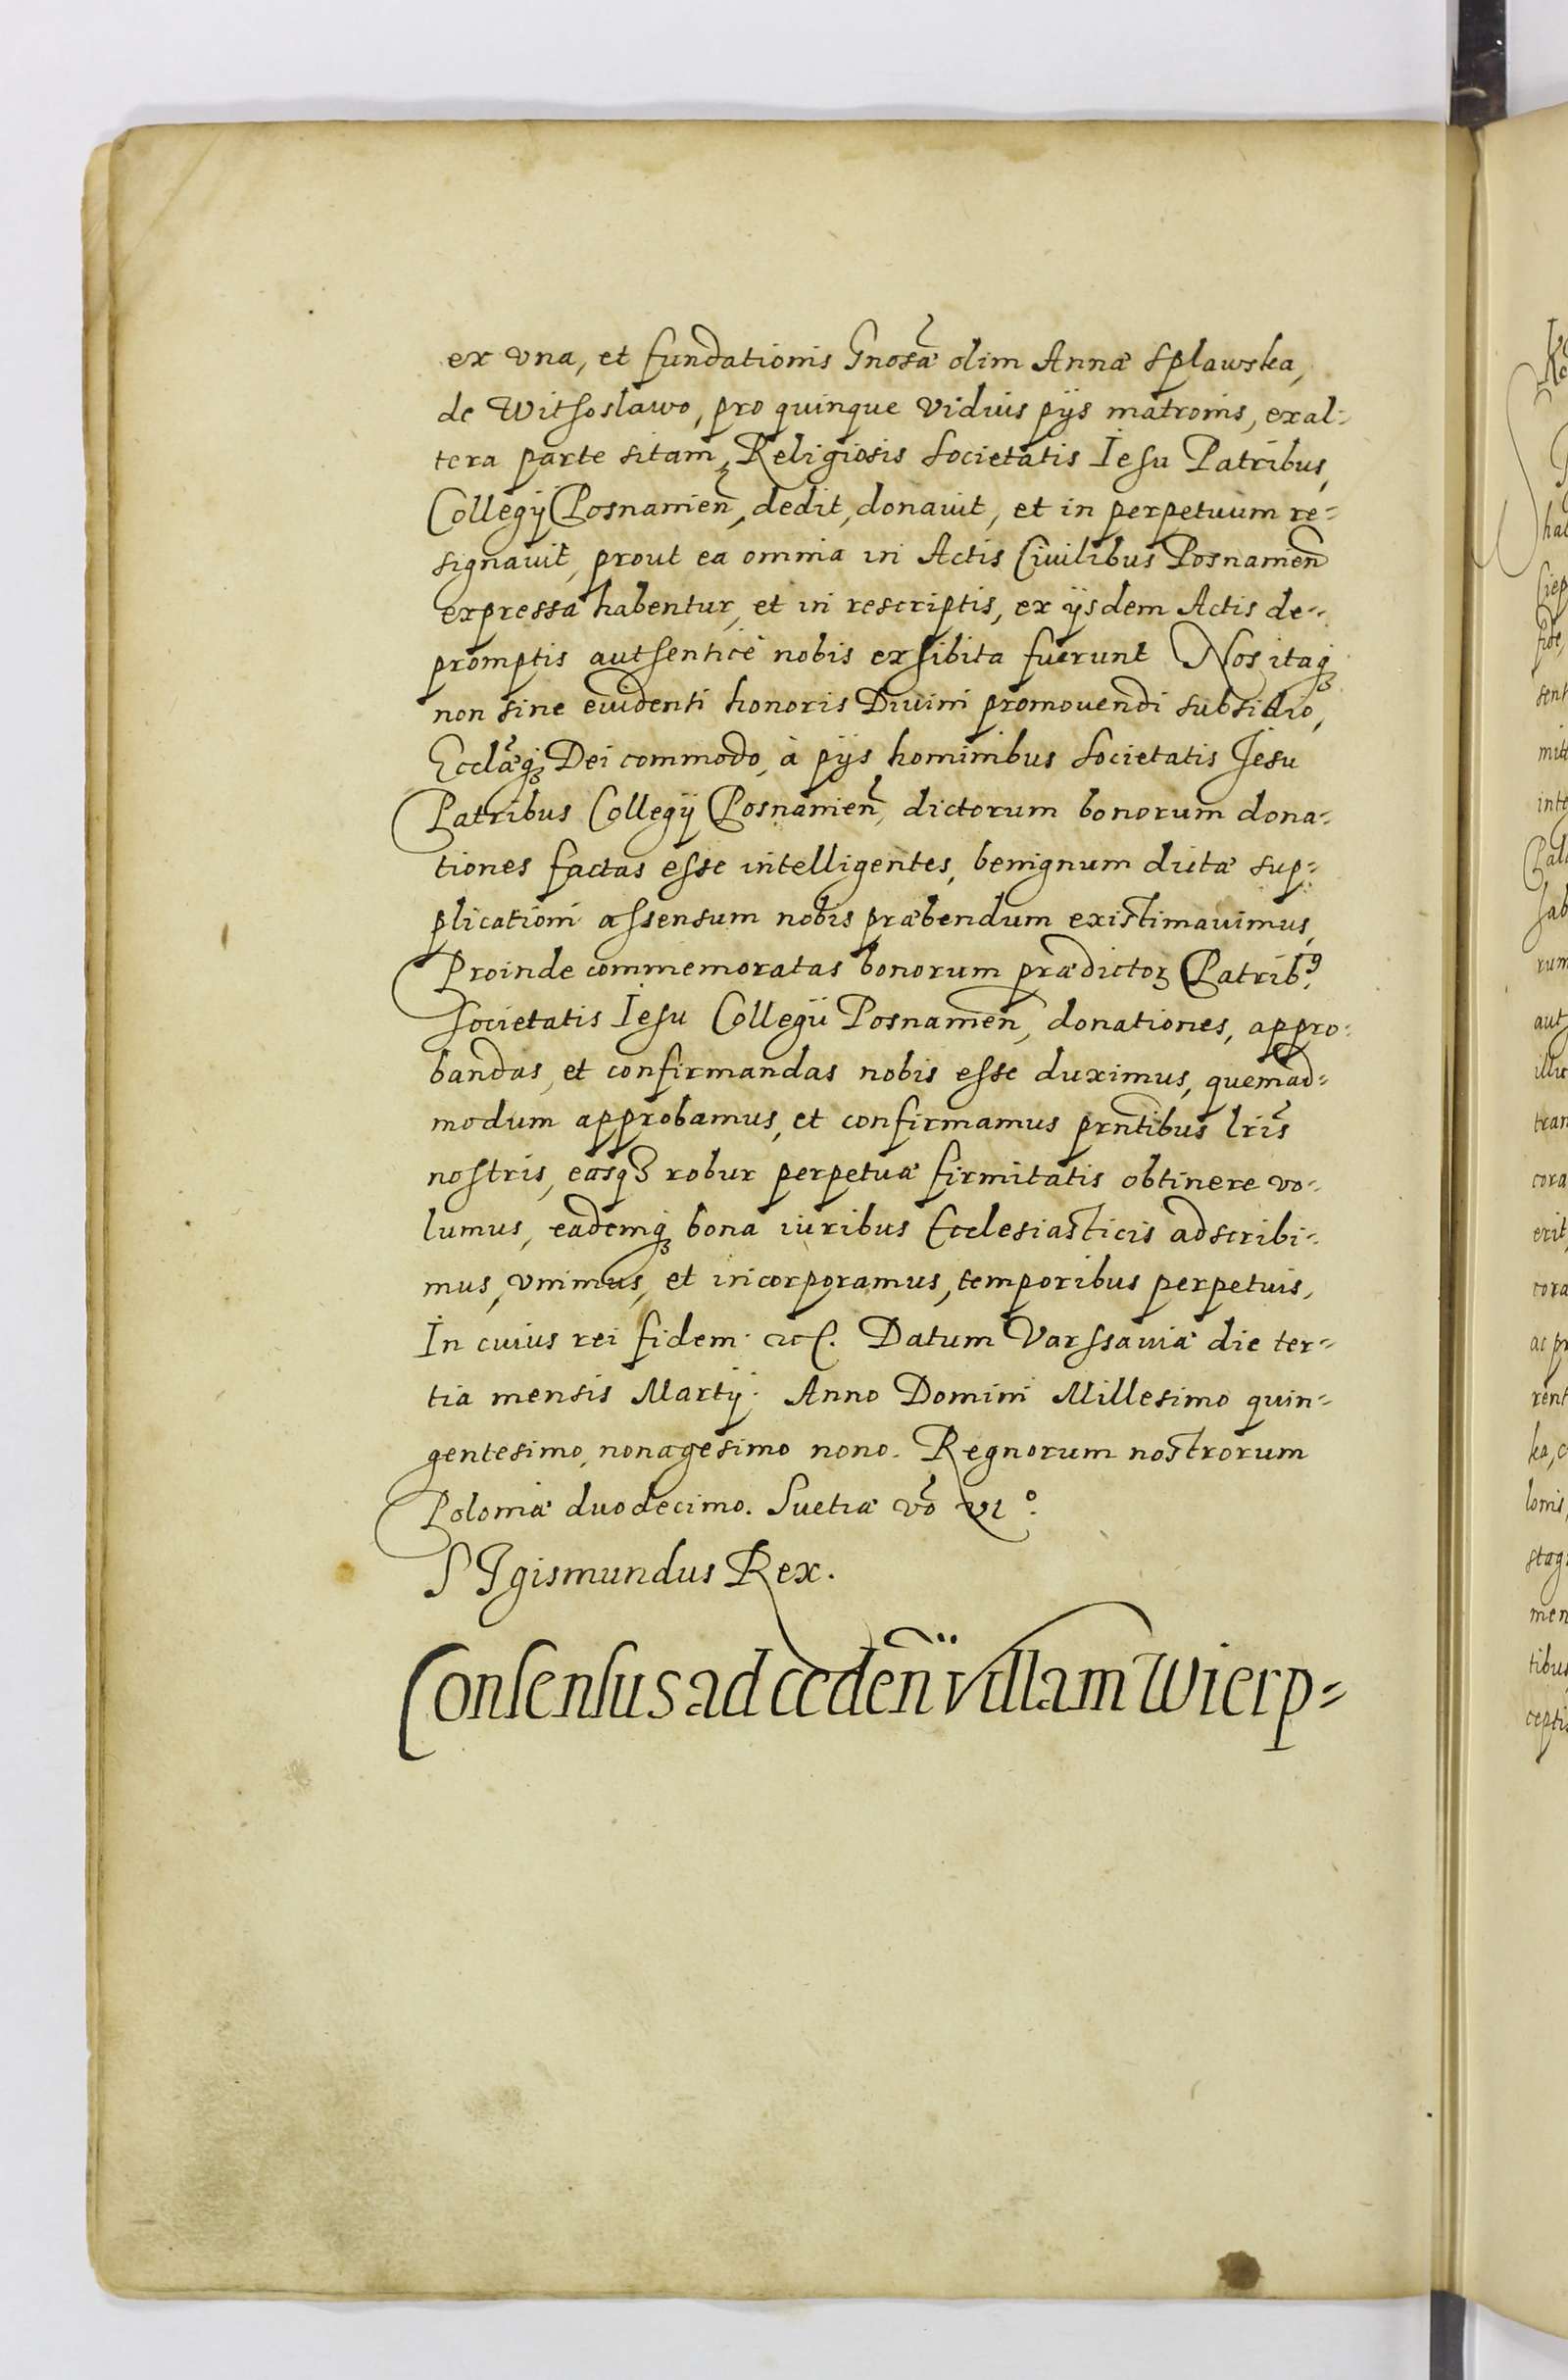 ex vna, et fundationis Gnosæ̃ olim Annæ Splawska,
de Withoslawo, pro quinque viduis pijs matronis, ex al=
tera parte sitam, Religiosis Societatis Iesu Patribus,
Collegij Posnanień, dedit, donauit, et in perpetuum re=
signauit, prout ea omnia in Actis Ciuilibus Posnanień
expressa habentur, et in rescriptis, ex ijsdem Actis de=
promptis authenticè nobis exhibita fuerunt Nos itaqꝫ
non sine euidenti honoris Diuini promouendi subsidio,
Ecclæ̃qꝫ Dei commodo, à pijs hominibus Societatis Jesu
Patribus Collegij Posnanień, dictorum bonorum dona=
tiones factas esse intelligentes, benignum dictæ sup=
plicationi assensum nobis præbendum existimauimus,
Proinde commemoratas bonorum prædictoꝝ Patribꝰ,
Societatis Iesu Collegii Posnanień, donationes, appro=
bandas, et confirmandas nobis esse duximus, quemad=
modum approbamus, et confirmamus prñtibus lrĩs
nostris, easqꝫ robur perpetuæ firmitatis obtinere vo=
lumus, eademqꝫ bona iuribus Ecclesiasticis adscribi=
mus, vnimus, et incorporamus, temporibus perpetuis,
In cuius rei fidem &c. Datum Varssauiæ die ter=
tia mensis Martij. Anno Domini Millesimo quin=
gentesimo, nonagesimo nono. Regnorum nostrorum
Poloniæ duodecimo. Suetiæ võ VIº.
SIgismundus Rex.
Consensus ad cedeñ villam Wierp=